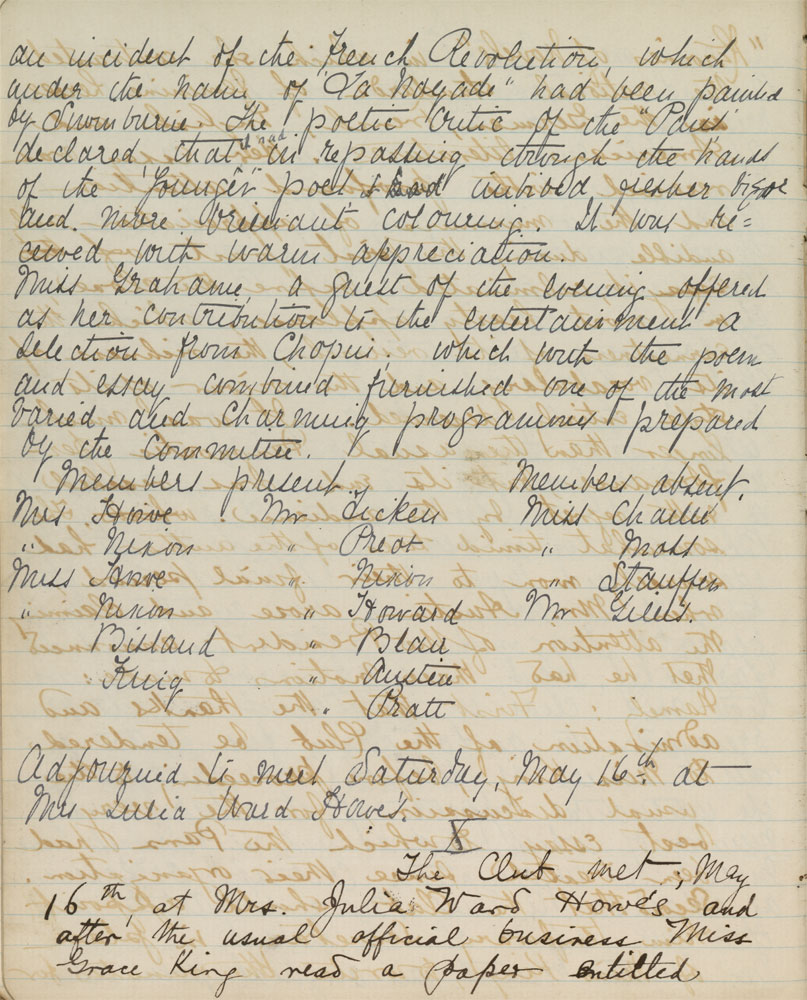 an incident of the French Revolution, which
under the name of "La Noyade" had been painted
by Swinburne. The poetic critic of the "Pans"
declared, that it had in repassing through the hands
of the "Younger" poet, imbibed fresher vigor
and more brilliant colouring. It was re=
ceived with warm appreciation.
Miss Grahame a guest of the evening offered
as her contribution to the entertainment a
selection from Chopin; which with the poem
and essay combined furnished one of the most
varied and charming programmes prepared
by the Committee.
Members present. Members absent.
Mrs Howe Mr Ficken Miss Charles
" Nixon " Preot " Moss
Miss Howe " Nixon " Stauffer
" Nixon " Howard Mr Giles.
Bisland " Blair
King " Austin
" Pratt
Adjourned to meet Saturday, May 16th at
Mrs Julia Ward Howe's.
X
The Club met, May
16th, at Mrs. Julia Ward Howe's and
after the usual official business Miss
Grace King read a paper entitled